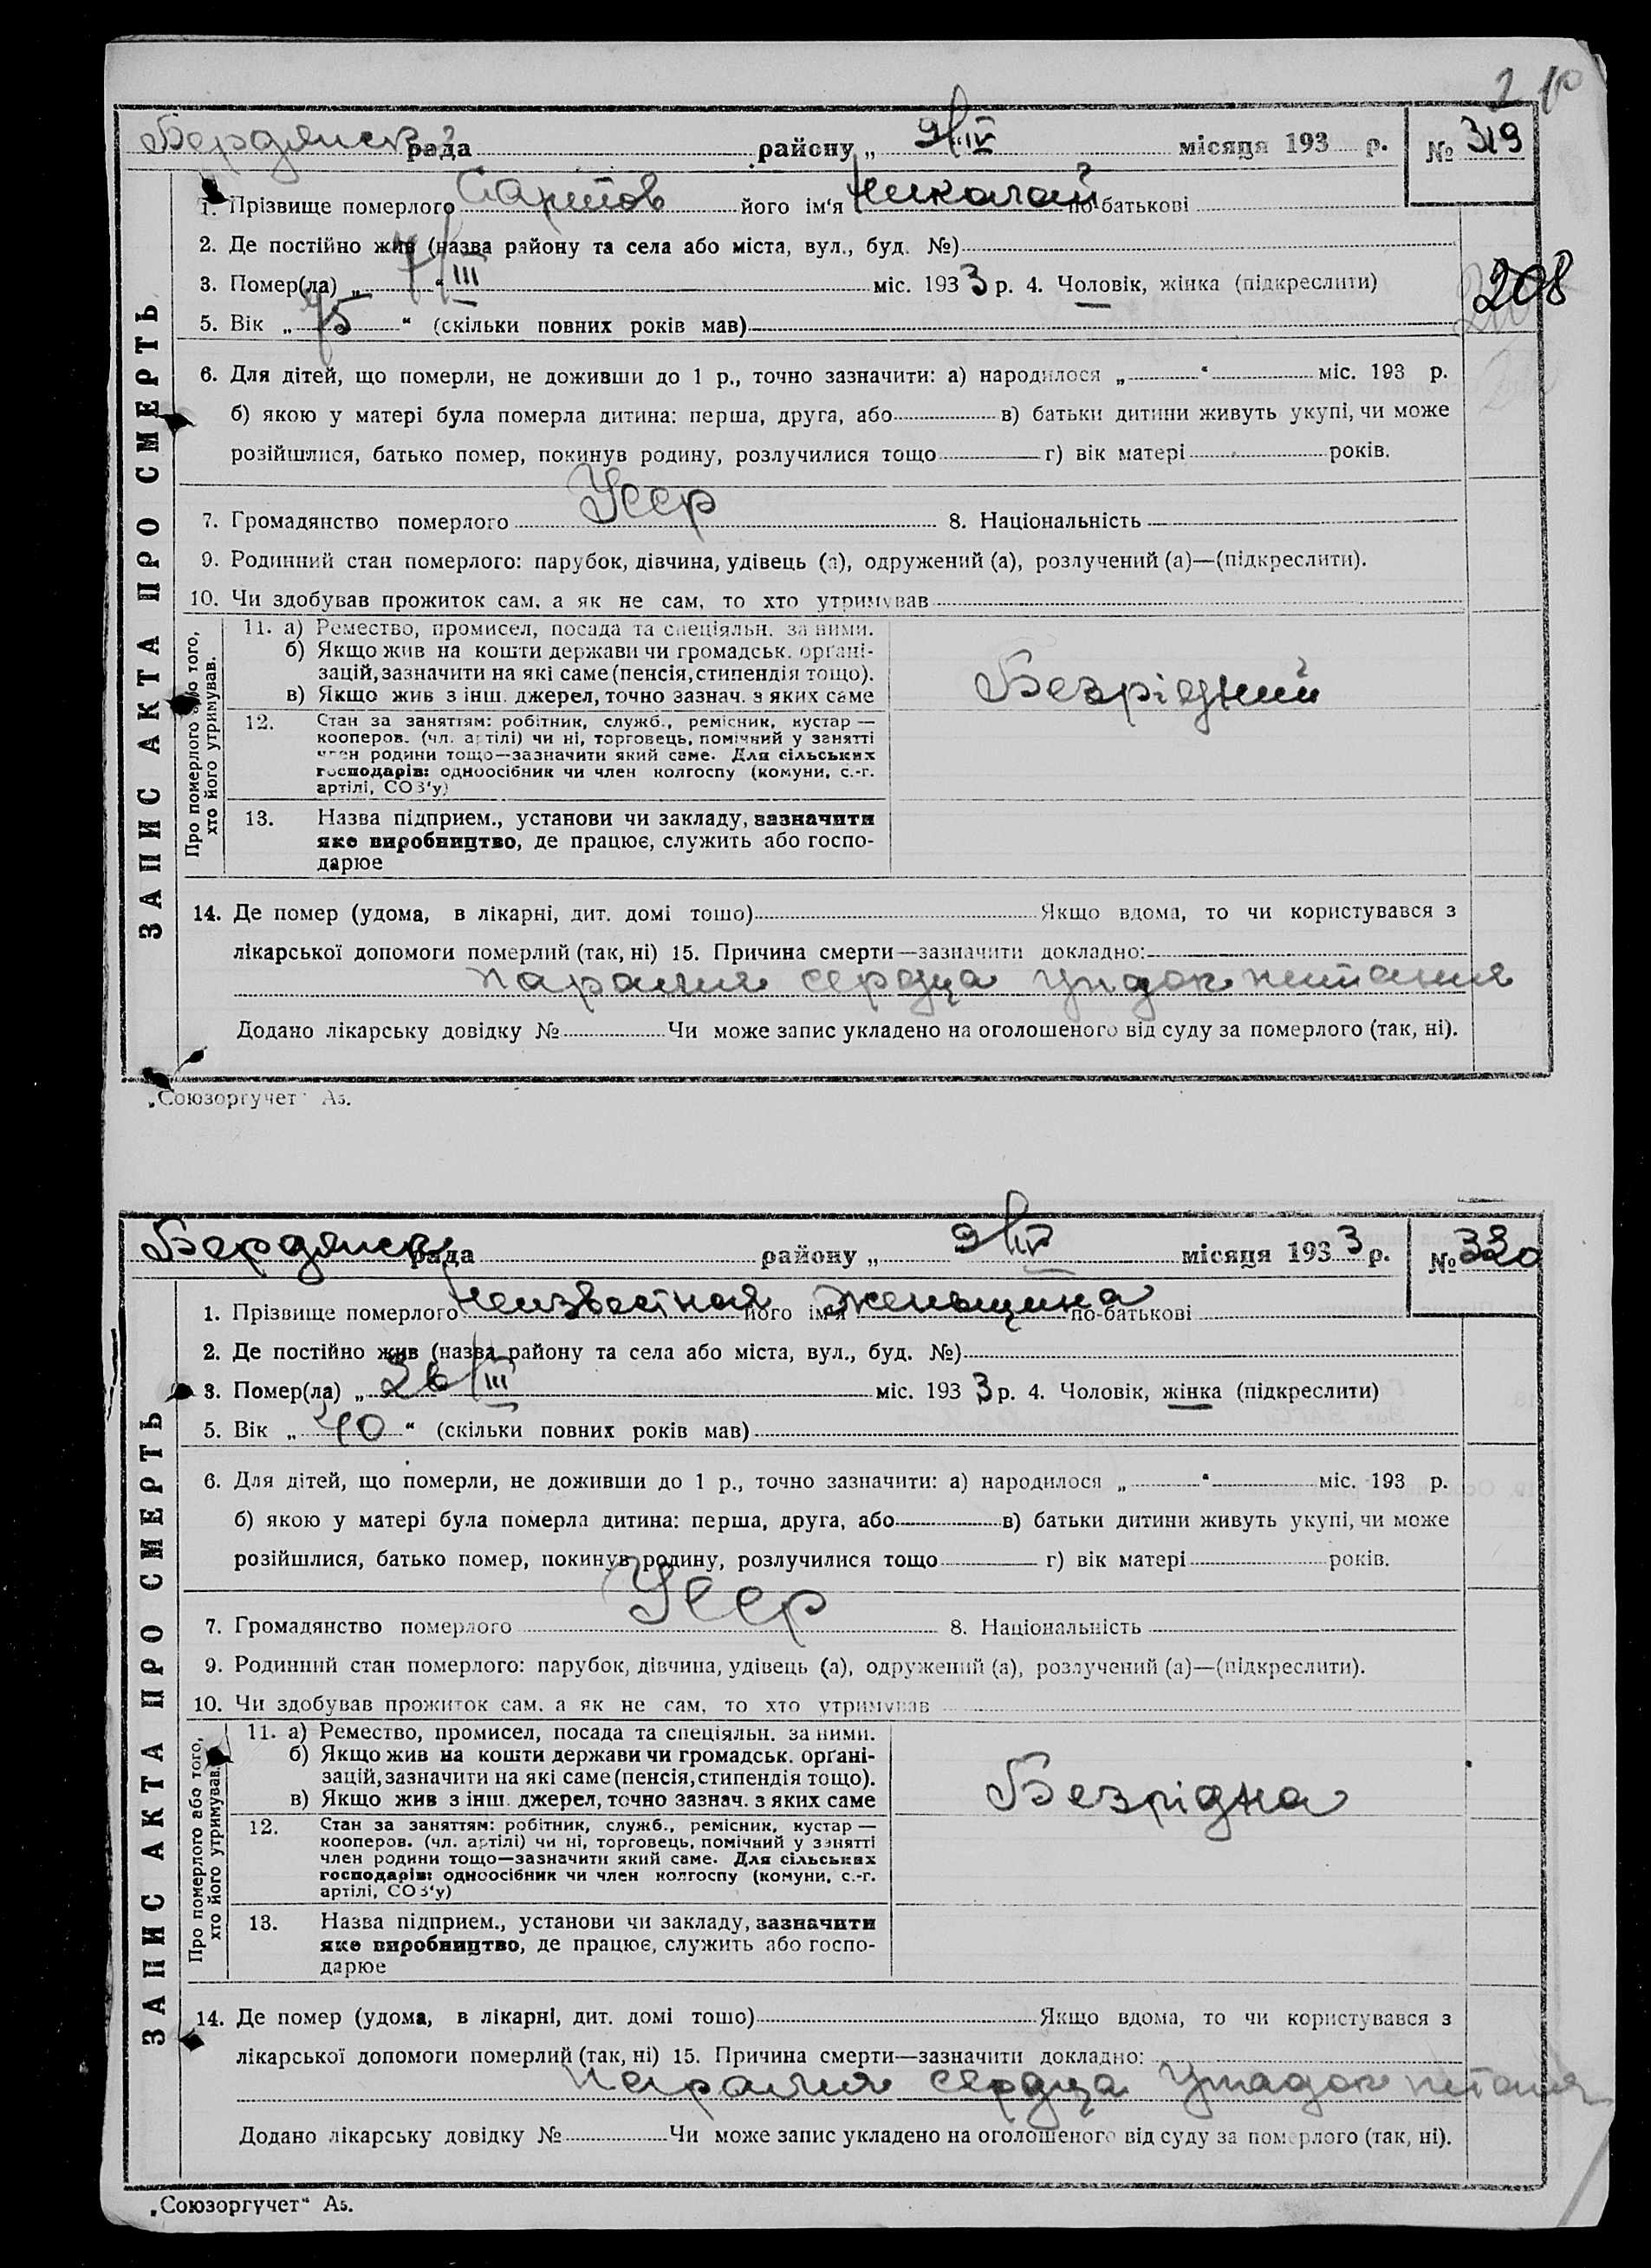 210
Бердянськ рада району „ 9/IV місяця 193 р. № 319
1. Прізвище померлого Саритов його ім'я Николай по-батькові
2. Де постійно жив (назва району та села або міста, вул., буд. №)
3. Помер(ла) „ 7/III міс. 1933 р. 4. Чоловік, жінка (підкреслити)
208
5. Вік „ 75 “ (скільки повних років мав)
6. Для дітей, що померли, не доживши до 1 р., точно зазначити: а) народилося „ “ міс. 193 р.
б) якою у матері була померла дитина: перша, друга, або в) батьки дитини живуть укупі, чи може
розійшлися, батько помер, покинув родину, розлучилися тощо г) вік матері років.
7. Громадянство померлого Усср 8. Національність
9. Родинний стан померлого: парубок, дівчина, удівець (а), одружений (а), розлучений (а)—(підкреслити).
10. Чи здобував прожиток сам, а як не сам, то хто утримував
Про померлого або того,
хто його утримував.
11. а) Ремество, промисел, посада та спеціяльн. за ними.
б) Якщо жив на кошти держави чи громадськ. орґані-
зацій, зазначити на які саме (пенсія, стипендія тощо).
в) Якщо жив з інш. джерел, точно зазнач. з яких саме
Безрідний
12. Стан за заняттям: робітник, служб., ремісник, кустар —
кооперов. (чл. артілі) чи ні, торговець, помічний у занятті
член родини тощо—зазначити який саме. Для сільських
господарів: одноосібник чи член колгоспу (комуни, с.-г.
артілі, СОЗ'у)
13. Назва підприєм., установи чи закладу, зазначити
яке виробництво, де працює, служить або госпо-
дарює
14. Де помер (удома, в лікарні, дит. домі тощо) Якщо вдома, то чи користувався з
лікарської допомоги померлий (так, ні) 15. Причина смерти—зазначити докладно:
паралич сердца упадок питания
Додано лікарську довідку № Чи може запис укладено на оголошеного від суду за померлого (так, ні).
ЗАПИС АКТА ПРО СМЕРТЬ
„Союзоргучет“ А5.
Бердянськ рада району „ 9/IV місяця 1933 р. № 320
1. Прізвище померлого Неизвестная його ім'я Женьщина по-батькові
2. Де постійно жив (назва району та села або міста, вул., буд. №)
3. Помер(ла) „ 26/III міс. 1933 р. 4. Чоловік, жінка (підкреслити)
5. Вік „ 40 “ (скільки повних років мав)
6. Для дітей, що померли, не доживши до 1 р., точно зазначити: а) народилося „ “ міс. 193 р.
б) якою у матері була померла дитина: перша, друга, або в) батьки дитини живуть укупі, чи може
розійшлися, батько помер, покинув родину, розлучилися тощо г) вік матері років.
7. Громадянство померлого Усср 8. Національність
9. Родинний стан померлого: парубок, дівчина, удівець (а), одружений (а), розлучений (а)—(підкреслити).
10. Чи здобував прожиток сам, а як не сам, то хто утримував
Про померлого або того,
хто його утримував.
11. а) Ремество, промисел, посада та спеціяльн. за ними.
б) Якщо жив на кошти держави чи громадськ. орґані-
зацій, зазначити на які саме (пенсія, стипендія тощо).
в) Якщо жив з інш. джерел, точно зазнач. з яких саме
Безрідна
12. Стан за заняттям: робітник, служб., ремісник, кустар —
кооперов. (чл. артілі) чи ні, торговець, помічний у занятті
член родини тощо—зазначити який саме. Для сільських
господарів: одноосібник чи член колгоспу (комуни, с.-г.
артілі, СОЗ'у)
13. Назва підприєм., установи чи закладу, зазначити
яке виробництво, де працює, служить або госпо-
дарює
14. Де помер (удома, в лікарні, дит. домі тощо) Якщо вдома, то чи користувався з
лікарської допомоги померлий (так, ні) 15. Причина смерти—зазначити докладно:
Паралич сердца упадок питания
Додано лікарську довідку № Чи може запис укладено на оголошеного від суду за померлого (так, ні).
ЗАПИС АКТА ПРО СМЕРТЬ
„Союзоргучет“ А5.